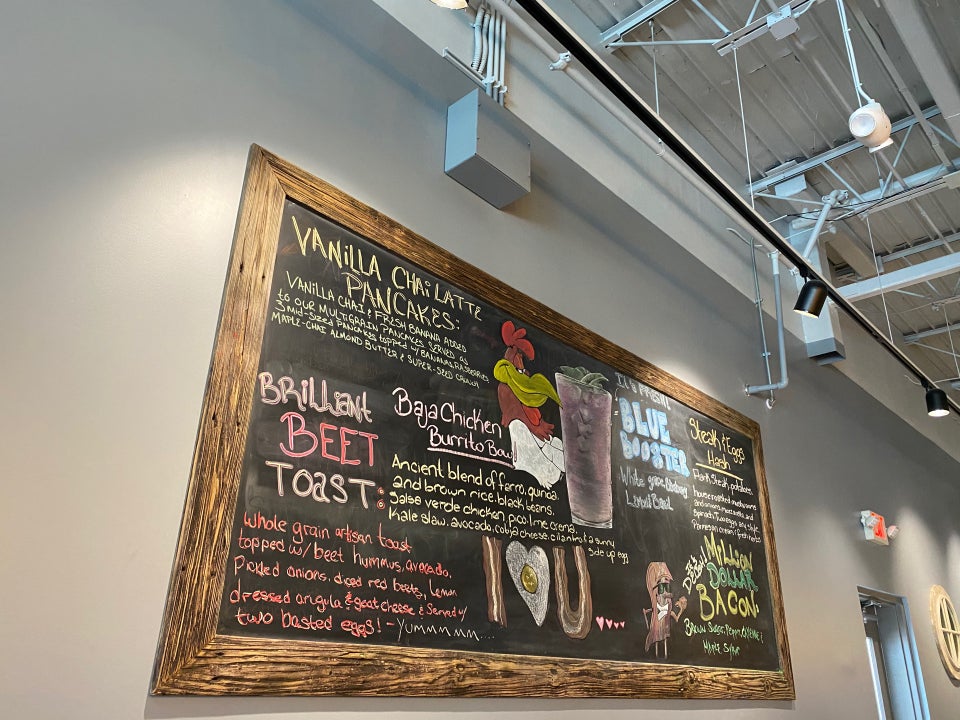 VANILLA CHAI LATTE
PANCAKES:
VANILLA CHAI & FRESH BANANA ADDED
to OUR MULTIGRAIN PANCAKES SERVED AS
3 mid-sized PANCAKES topped w/ BANANAS, RASBERRIES
MAPLE-CHAI ALMOND BUTTER & SUPER-SEED CRUNCH
BRilliant
BEET
TOAST:
Whole grain artisan toast
topped w/ beet hummus, avocado,
Pickled onions, diced red beets, Lemon
dressed arugula & goat cheese & Served w/
two basted eggs! - YUMMMMM...
Baja Chicken
Burrito Bowl
Ancient blend of farro, quinoa
and brown rice, black beans,
salse verde chicken, pico, lime crema,
Kale slaw, avocado, cotija cheese, cilantro & a sunny
side up egg
I U
BLUE
BOOSTER
White grape,
Steak & Eggs
Hash
Flank Steak, potatoes,
house roasted mushrooms
and onions, mozzarella, and
Spinach. Two eggs any style,
Parmesan cream & fresh herbs
MILLION
DOLLAR
BACON:
BROWN SUGAR, Pepper, CAYENNE &
MAPLE SYRUP